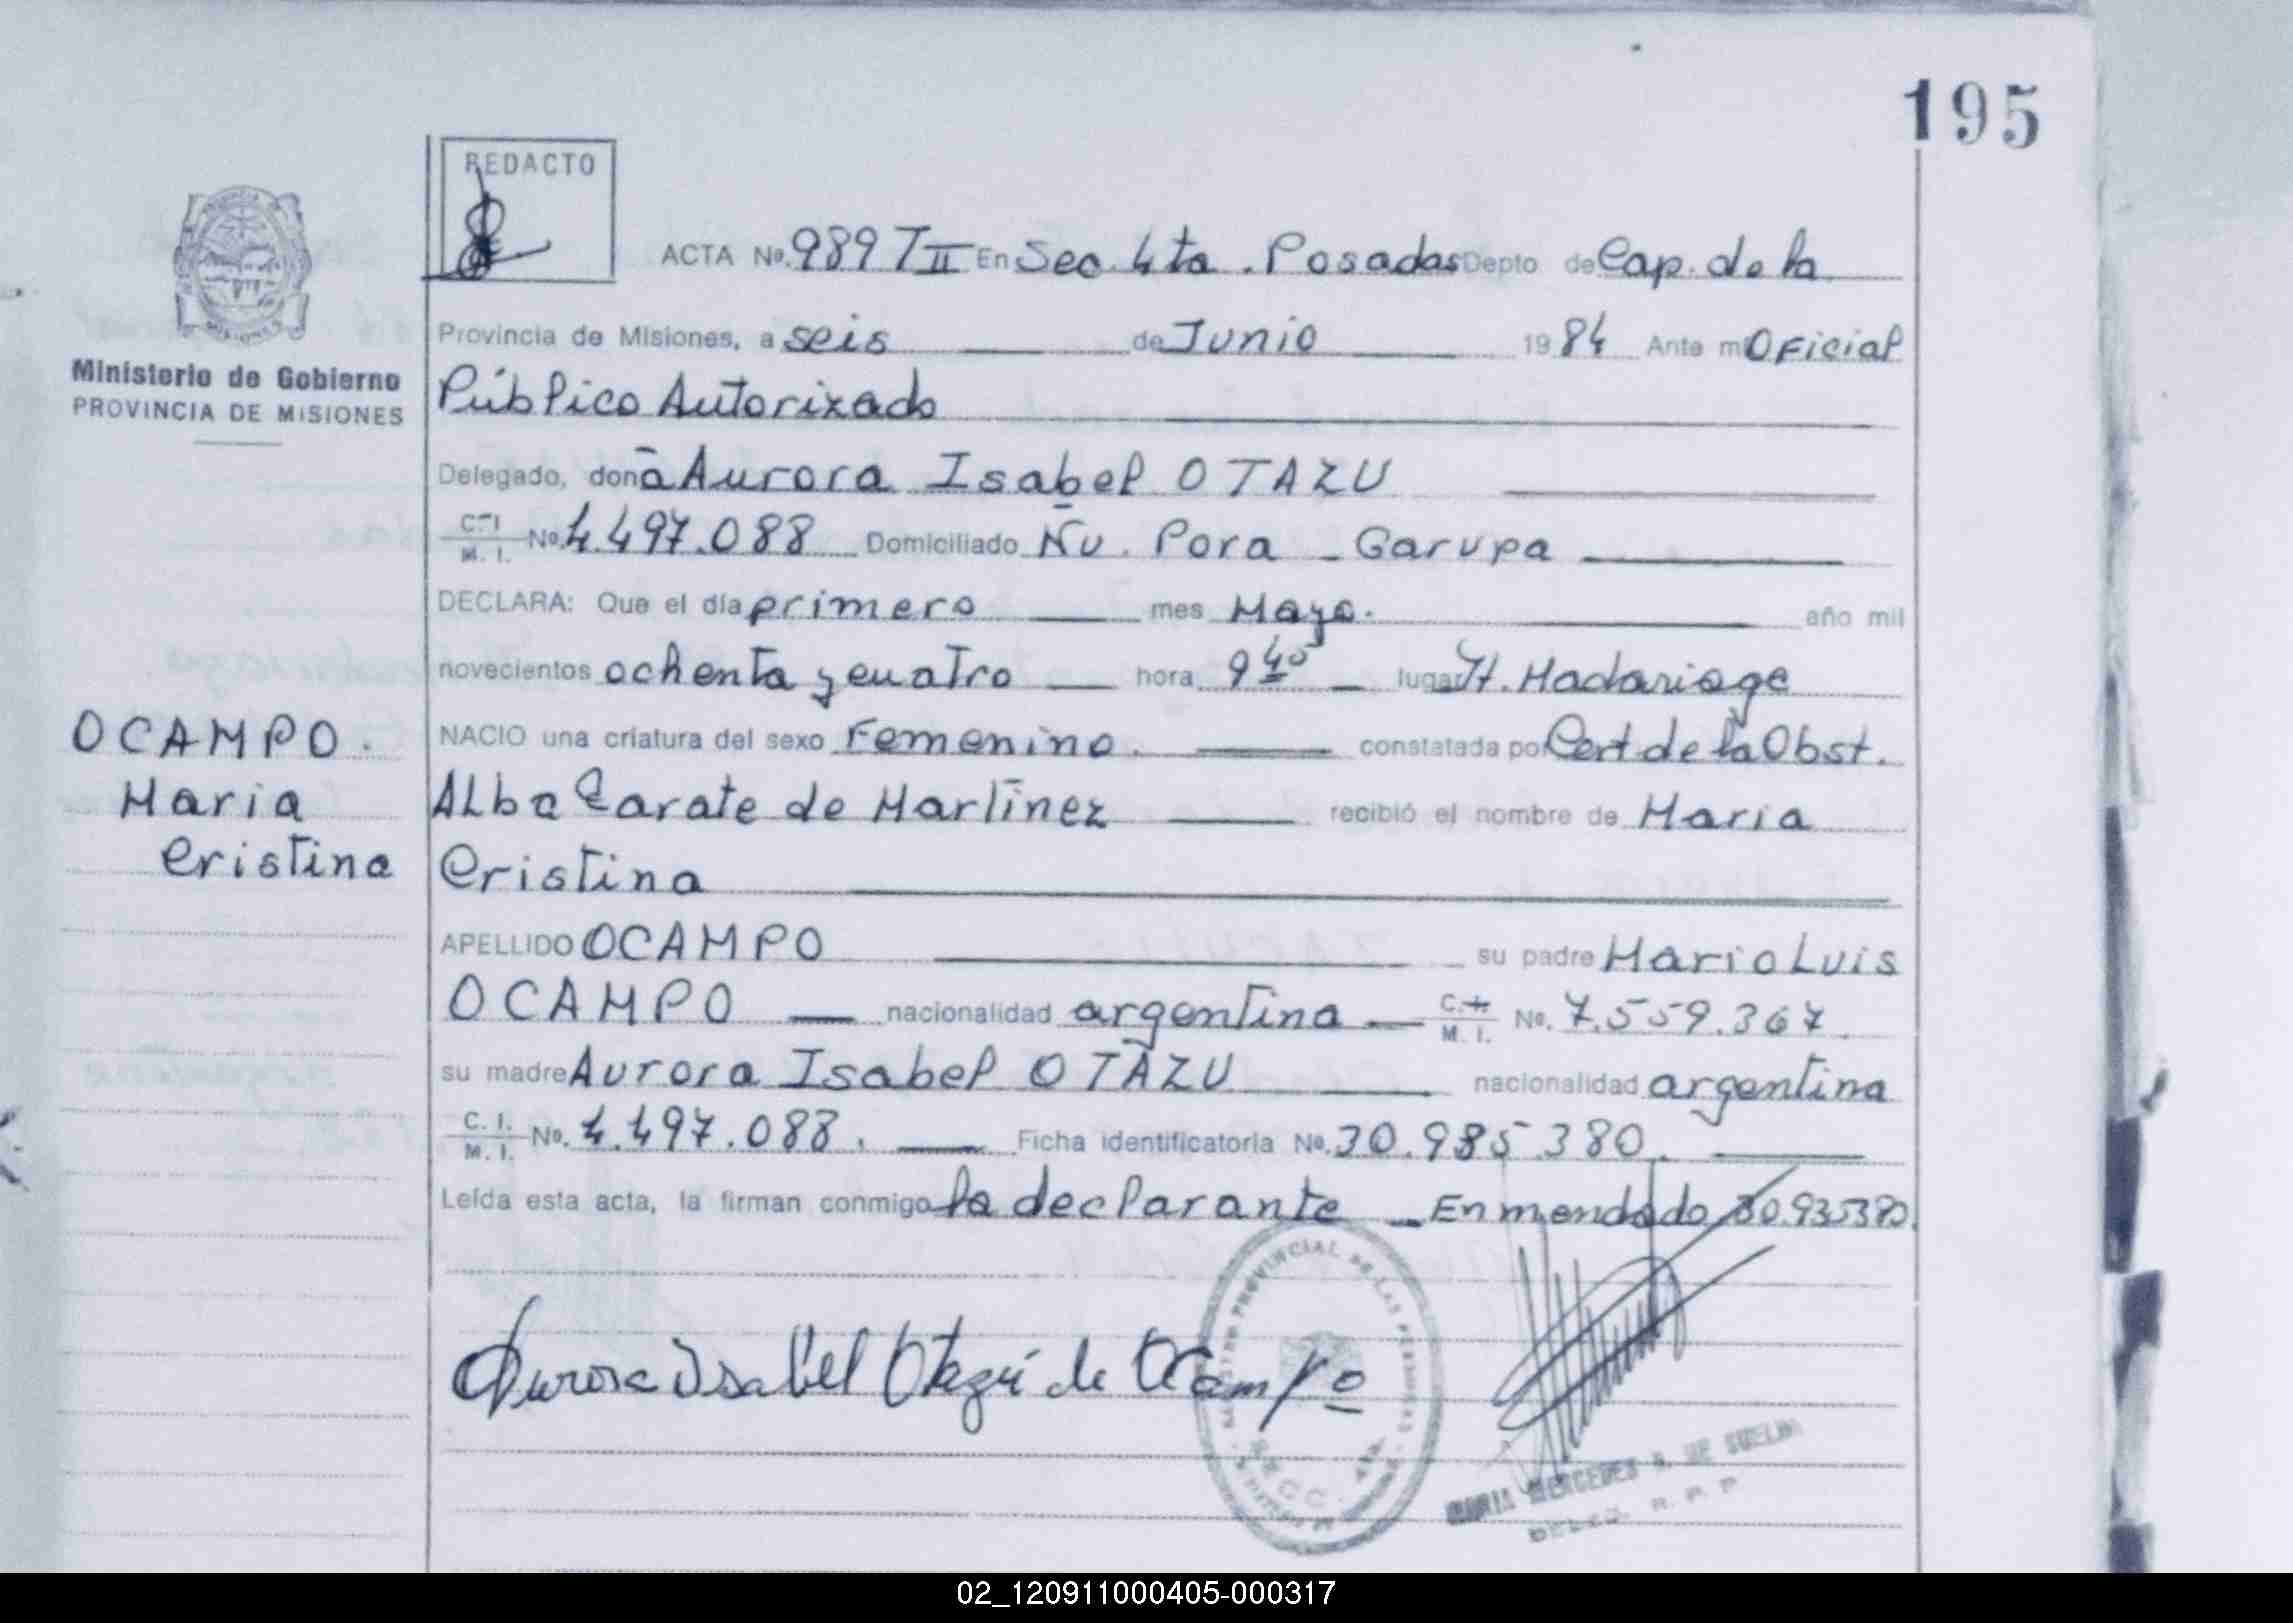 195
REDACTO
ACTA No. 989 T II En Sec. 4ta. Posadas Depto de Cap. de la
Provincia de Misiones, a seis de Junio 1984 Ante mi Oficial
Ministerio de Gobierno
PROVINCIA DE MISIONES
Público Autorizado
Delegado, doña Aurora Isabel OTAZU
C. I. M. I. No. 4.497.088 Domiciliado Ñu. Pora - Garupa
DECLARA: Que el día primero mes Mayo. año mil
novecientos ochenta y cuatro hora 9 40 lugar H. Madariaga
OCAMPO.
Maria
Cristina
NACIO una criatura del sexo Femenino. constatada por Cert de la Obst.
Alba Zarate de Martinez recibió el nombre de Maria
Cristina
APELLIDO OCAMPO su padre Mario Luis
OCAMPO nacionalidad argentina C. I. M. I. No. 7.559.367.
su madre Aurora Isabel OTAZU nacionalidad argentina
C. I. M. I. No. 4.497.088. Ficha identificatoria No. 30.985.380.
Leída esta acta, la firman conmigo la declarante - Enmendado 30.935380.
Aurora Isabel Otazú de Ocampo
REGISTRO PROVINCIAL DE LAS PERSONAS
SECC. 4ta.
MARIA MERCEDES DE
DELEG. R. P. P.
02_120911000405-000317